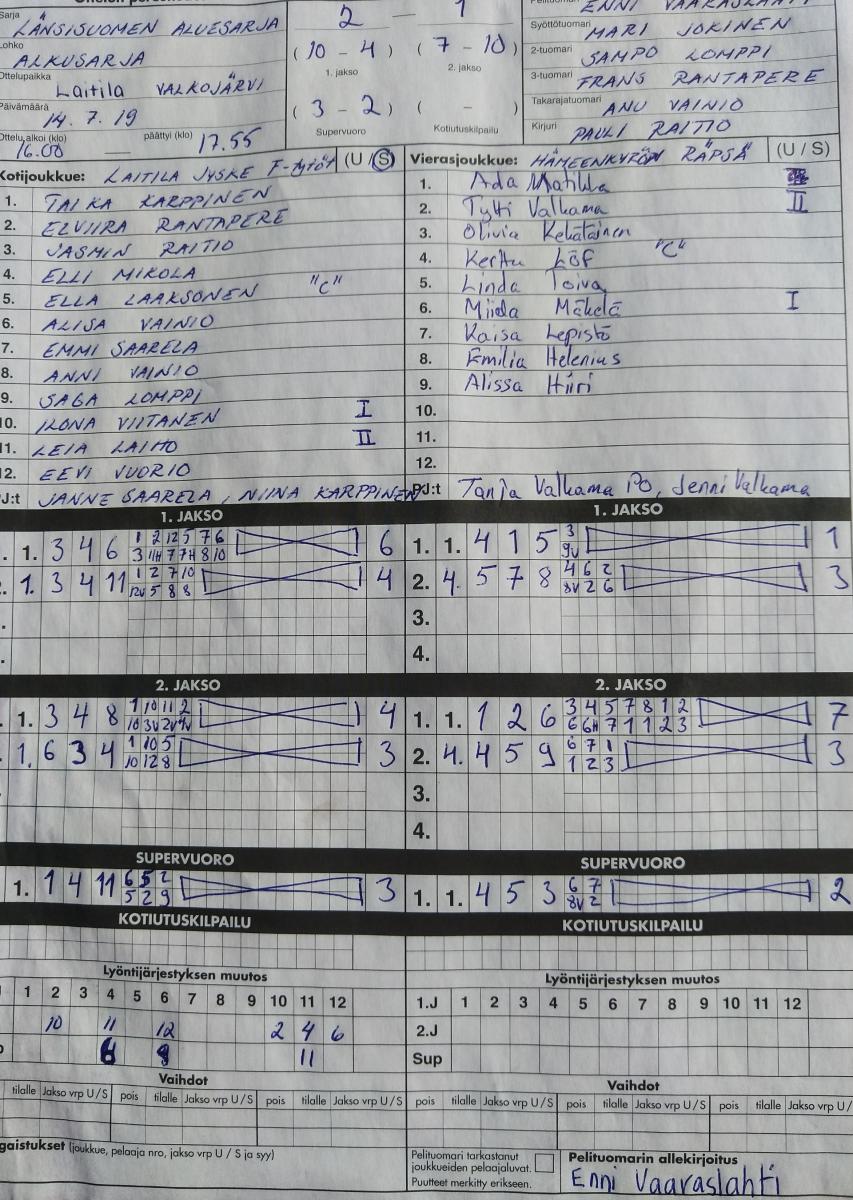 Sarja
LÄNSISUOMEN ALUESARJA
Lohko
ALKUSARJA
Ottelupaikka
Laitila VALKOJÄRVI
Päivämäärä
14.7.19
Ottelu alkoi (klo) päättyi (klo)
16.00 — 17.55
2 — 1
(10 - 4) (7 - 10)
1. jakso 2. jakso
(3 - 2) ( - )
Supervuoro Kotiutuskilpailu
Pelituomari
ENNI
Syöttötuomari MARI JOKINEN
2-tuomari SAMPO LOMPPI
3-tuomari FRANS RANTAPERE
Takarajatuomari ANU VAINIO
Kirjuri PAULI RAITIO
Kotijoukkue: LAITILA JYSKE F-tytöt (U / S)
1. TAIKA KARPPINEN
2. ELVIIRA RANTAPERE
3. JASMIN RAITIO
4. ELLI MIKOLA
5. ELLA LAAKSONEN "C"
6. ALISA VAINIO
7. EMMI SAARELA
8. ANNI VAINIO
9. SAGA LOMPPI
10. ILONA VIITANEN I
11. LEIA LAIHO II
12. EEVI VUORIO
PJ:t JANNE SAARELA, NIINA KARPPINEN
Vierasjoukkue: HÄMEENKYRÖN RÄPSÄ (U / S)
1. Ada Matikka
2. Tytti Valkama II
3. Olivia
4. Kerttu Löf "C"
5. Linda Toiva
6. Miida Mäkelä I
7. Kaisa Lepistö
8. Emilia Helenius
9. Alissa Hiiri
10.
11.
12.
PJ:t Tanja Valkama PO, Jenni Valkama
1. JAKSO
1. 3 4 6 1 2 12 5 7 6 6
3 11H 7 7H 8 10
1. 3 4 11 1 2 7 10 4
12V 5 8 8
1. JAKSO
1. 1. 4 1 5 3 1
9V
2. 4. 5 7 8 4 6 2 3
8V 2 6
3.
4.
2. JAKSO
1. 3 4 8 1 10 11 2 4
10 3V 2V 4V
1. 6 3 4 1 10 5 3
10 12 8
2. JAKSO
1. 1. 1 2 6 3 4 5 7 8 1 2 7
6 6H 7 1 1 2 3
2. 4. 4 5 9 6 7 1 3
1 2 3
3.
4.
SUPERVUORO
1. 1 4 11 6 5 2 3
5 2 9
SUPERVUORO
1. 1. 4 5 3 6 7 2
8V 2
KOTIUTUSKILPAILU
KOTIUTUSKILPAILU
Lyöntijärjestyksen muutos
1 2 3 4 5 6 7 8 9 10 11 12
10 11 12 2 4 6
11
Lyöntijärjestyksen muutos
1.J 1 2 3 4 5 6 7 8 9 10 11 12
2.J
Sup
Vaihdot
tilalle Jakso vrp U/S pois tilalle Jakso vrp U/S pois tilalle Jakso vrp U/S
Vaihdot
pois tilalle Jakso vrp U/S pois tilalle Jakso vrp U/S pois tilalle Jakso vrp U/
gaistukset (joukkue, pelaaja nro, jakso vrp U / S ja syy)
Pelituomari tarkastanut
joukkueiden pelaajaluvat.
Puutteet merkitty erikseen.
Pelituomarin allekirjoitus
Enni Vaaraslahti